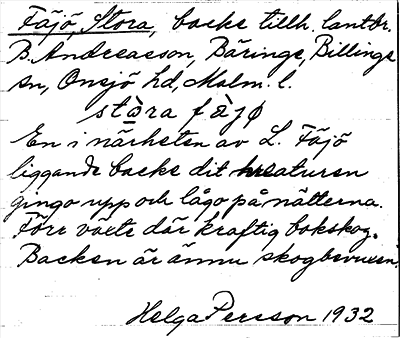 Fäjö, Stora, backe tillh. lantbr.
B. Andreasson, Bäringe, Billinge
sn, Onsjö hd, Malm. l.
stòra fàjø
En i närheten av L. Fäjö
liggande backe dit kreaturen
gingo upp och lågo på nätterna.
Förr växte där kraftig bokskog.
Backen är ännu skogbevuxen.
Helga Persson 1932